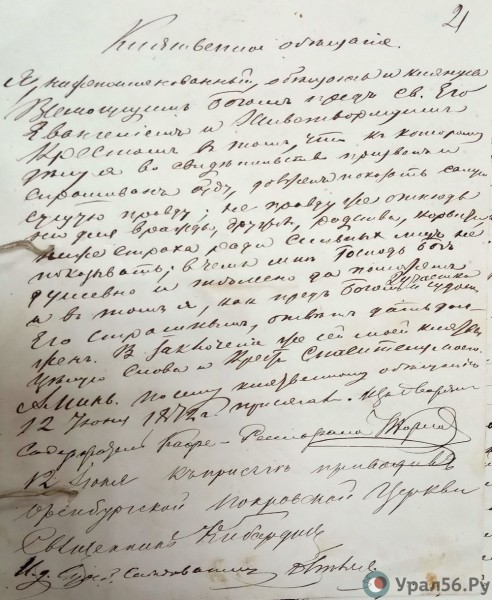 21
Клятвенное обещание.
Я, нижепоименованный, обещаюсь и клянусь
Всемогущимъ Богомъ предъ св. Его
Евангелiемъ и Животворящимъ
Крестомъ въ томъ, что къ которому
дѣлу я во свидѣтельство призванъ и
спрашиванъ буду, долженъ показать самую
сущую правду, не правду же отнюдь
ни для вражды, дружбы, родства, корысти,
ниже страха ради сильныхъ лицъ не
показывать, въ чемъ мнѣ Господь Богъ
душевно и тѣлесно да поможетъ
а въ томъ я, какъ предъ Богомъ и судомъ
Его страшнымъ, отвѣтъ дать дол-
женъ. В заключенiе же сей моей клятвы
цѣлую слова и Крестъ Спасителя моего.
Аминь. По сему клятвенному обѣщанiю
12 Iюня 1872 г. присягалъ
12 Iюня къ присягѣ приводилъ
Оренбургской Покровской Церкви
Священникъ
И. д.
Урал56.Ру